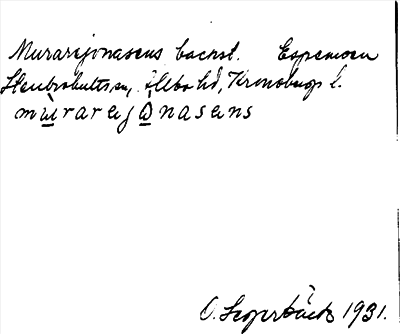 Murarejonasens backst. Espemoen
Stenbrohults sn, Allbo hd, Kronobergs l.
mùrarejònasens
O. Segerbäck 1931.